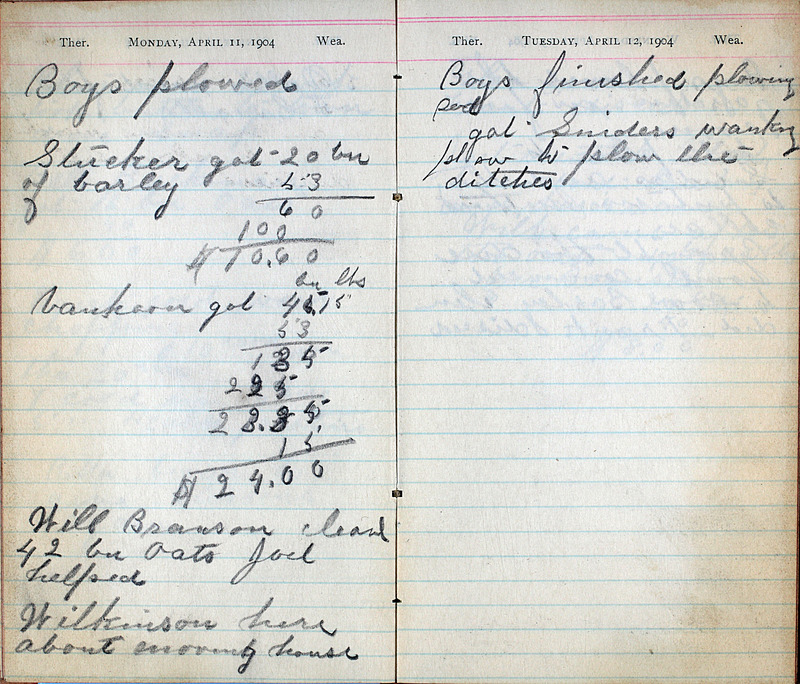 Ther. MONDAY, APRIL 11, 1904 Wea.
Boys plowed
Stucker got 20 bu
of barley
53
60
100
$10.60
bu lbs
Vankoon got 45.15
53
135
225
23.85
15
$24.00
Will Branson cleaned
42 bu Oats Joel
helped
Wilkinson here
about moving house
Ther. TUESDAY, APRIL 12, 1904 Wea.
Boys finished plowing
sod
got Sniders wanting
plow to plow the
ditches